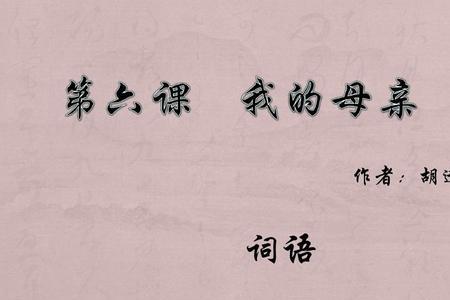 第六课 我的母亲
作者：胡
词语